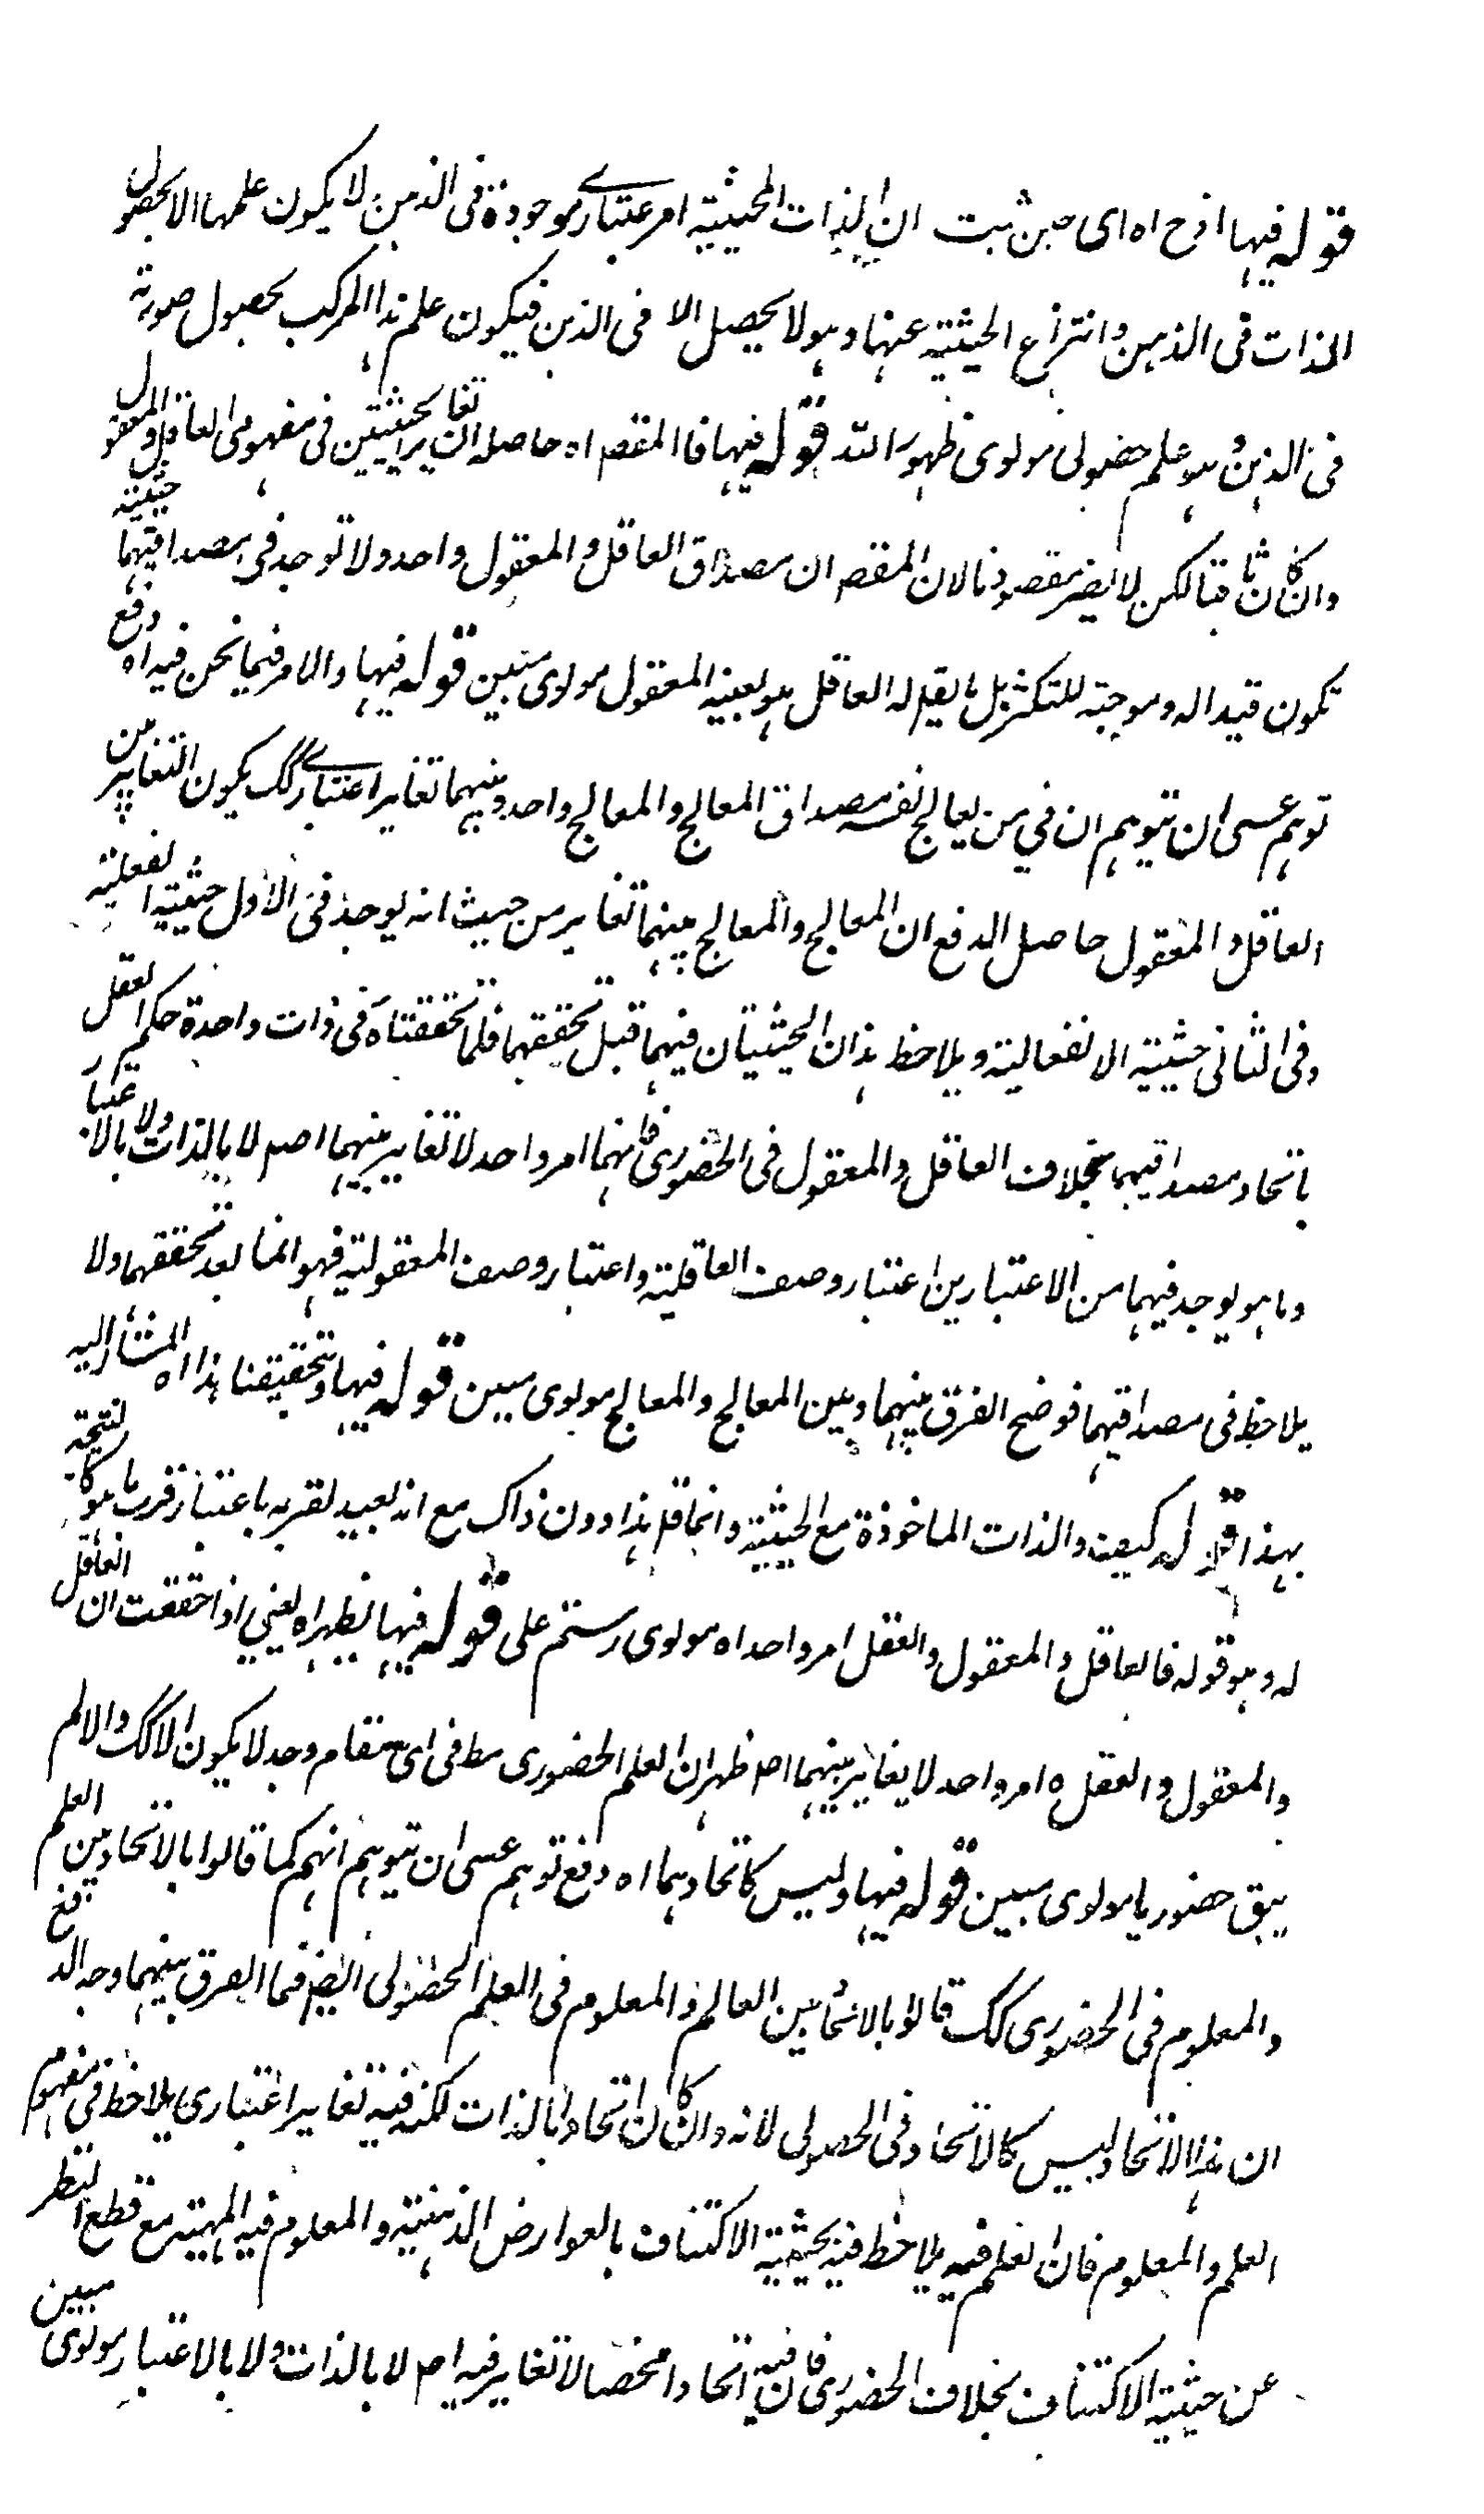 قوله فيها اذ ح اه اى حين ثبت ان الذات الحيثية امر اعتبارى موجودة فى الذهن لا يكون علمها الا بحصول
الذات فى الذهن وانتزاع الحيثية عنها وهو لا يحصل الا فى الذهن فيكون علم هذا المركب بحصول صورته
فى الذهن وهو علم حصولى مولوى ظهور الله قوله فيها فالمقصم اه حاصله ان تغاير الحيثيتين فى مفهومى العاقل والمعقول
وان كان ثابتا لكن لا يضر مقصودنا لان المقصم ان مصداق العاقل والمعقول واحد ولا توجد فى مصداقيهما حيثية
تكون قيدا له وموجبة للتكثر بل ما يقيم له العاقل هو بعينه المعقول مولوى مبين قوله فيها والامر فيما نحن فيه اه دفع
توهم عسى ان يتوهم ان فى من يعالج نفسه مصداق المعالج والمعالج واحد وبينهما تغاير اعتبارى كك يكون التغاير بين
العاقل والمعقول حاصل الدفع ان المعالج والمعالج بينهما تغاير من حيث انه يوجد فى الاول حيثية الفعلية
وفى الثانى حيثية الانفعالية ويلاحظ هذان الحيثيتان فيهما قبل تحققهما فلما تحققتا فى ذات واحدة حكم العقل
باتحاد مصداقيهما بخلاف العاقل والمعقول فى الحضورى فانهما امر واحد لا تغاير بينهما اصم لا بالذات ولا بالاعتبار
وما هو يوجد فيهما من الاعتبارين اعتبار وصف العاقلية واعتبار وصف المعقولية فهو انما بعد تحققهما ولا
يلاحظ فى مصداقيهما فوضح الفرق بينهما وبين المعالج والمعالج مولوى مبين قوله فيها وتحقيقنا هذا اه المشار اليه
بهذا قوله كيف والذات الماخوذة مع الحيثية وانما قم هذا دون ذاك مع انه بعيد لقربه باعتبار قرب ما هو كالنتيجة
له وهو قوله فالعاقل والمعقول والعقل امر واحد اه مولوى رستم على قوله فيها يظهر اه يعنى اذا حققت ان العاقل
والمعقول والعقل ه امر واحد لا يغاير بينهما اصم ظهر ان العلم الحضورى مط فى اى مقام وجد لا يكون الا كك والا لم
يبق حضوريا مولوى مبين قوله فيها وليس كاتحادهما اه دفع توهم عسى ان يتوهم انهم كما قالوا بالاتحاد بين العلم
والمعلوم فى الحضورى كك قالوا بالاتحاد بين العالم والمعلوم فى العلم الحصولى ايضم فما الفرق بينهما وجه الدفع
ان هذا الاتحاد ليس كالاتحاد فى الحصولى لانه وان كان اتحادا بالذات لكنه فيه تغاير اعتبارى يلاحظ فى مفهوم
العلم والمعلوم فان العلم فيه يلاحظ فيه بحيثية الاكتناف بالعوارض الذهنية والمعلوم فيه المهية مع قطع النظر
عن حيثية الاكتناف بخلاف الحضورى فان فيه اتحادا محضا لا تغاير فيه اصم لا بالذات ولا بالاعتبار مولوى مبين